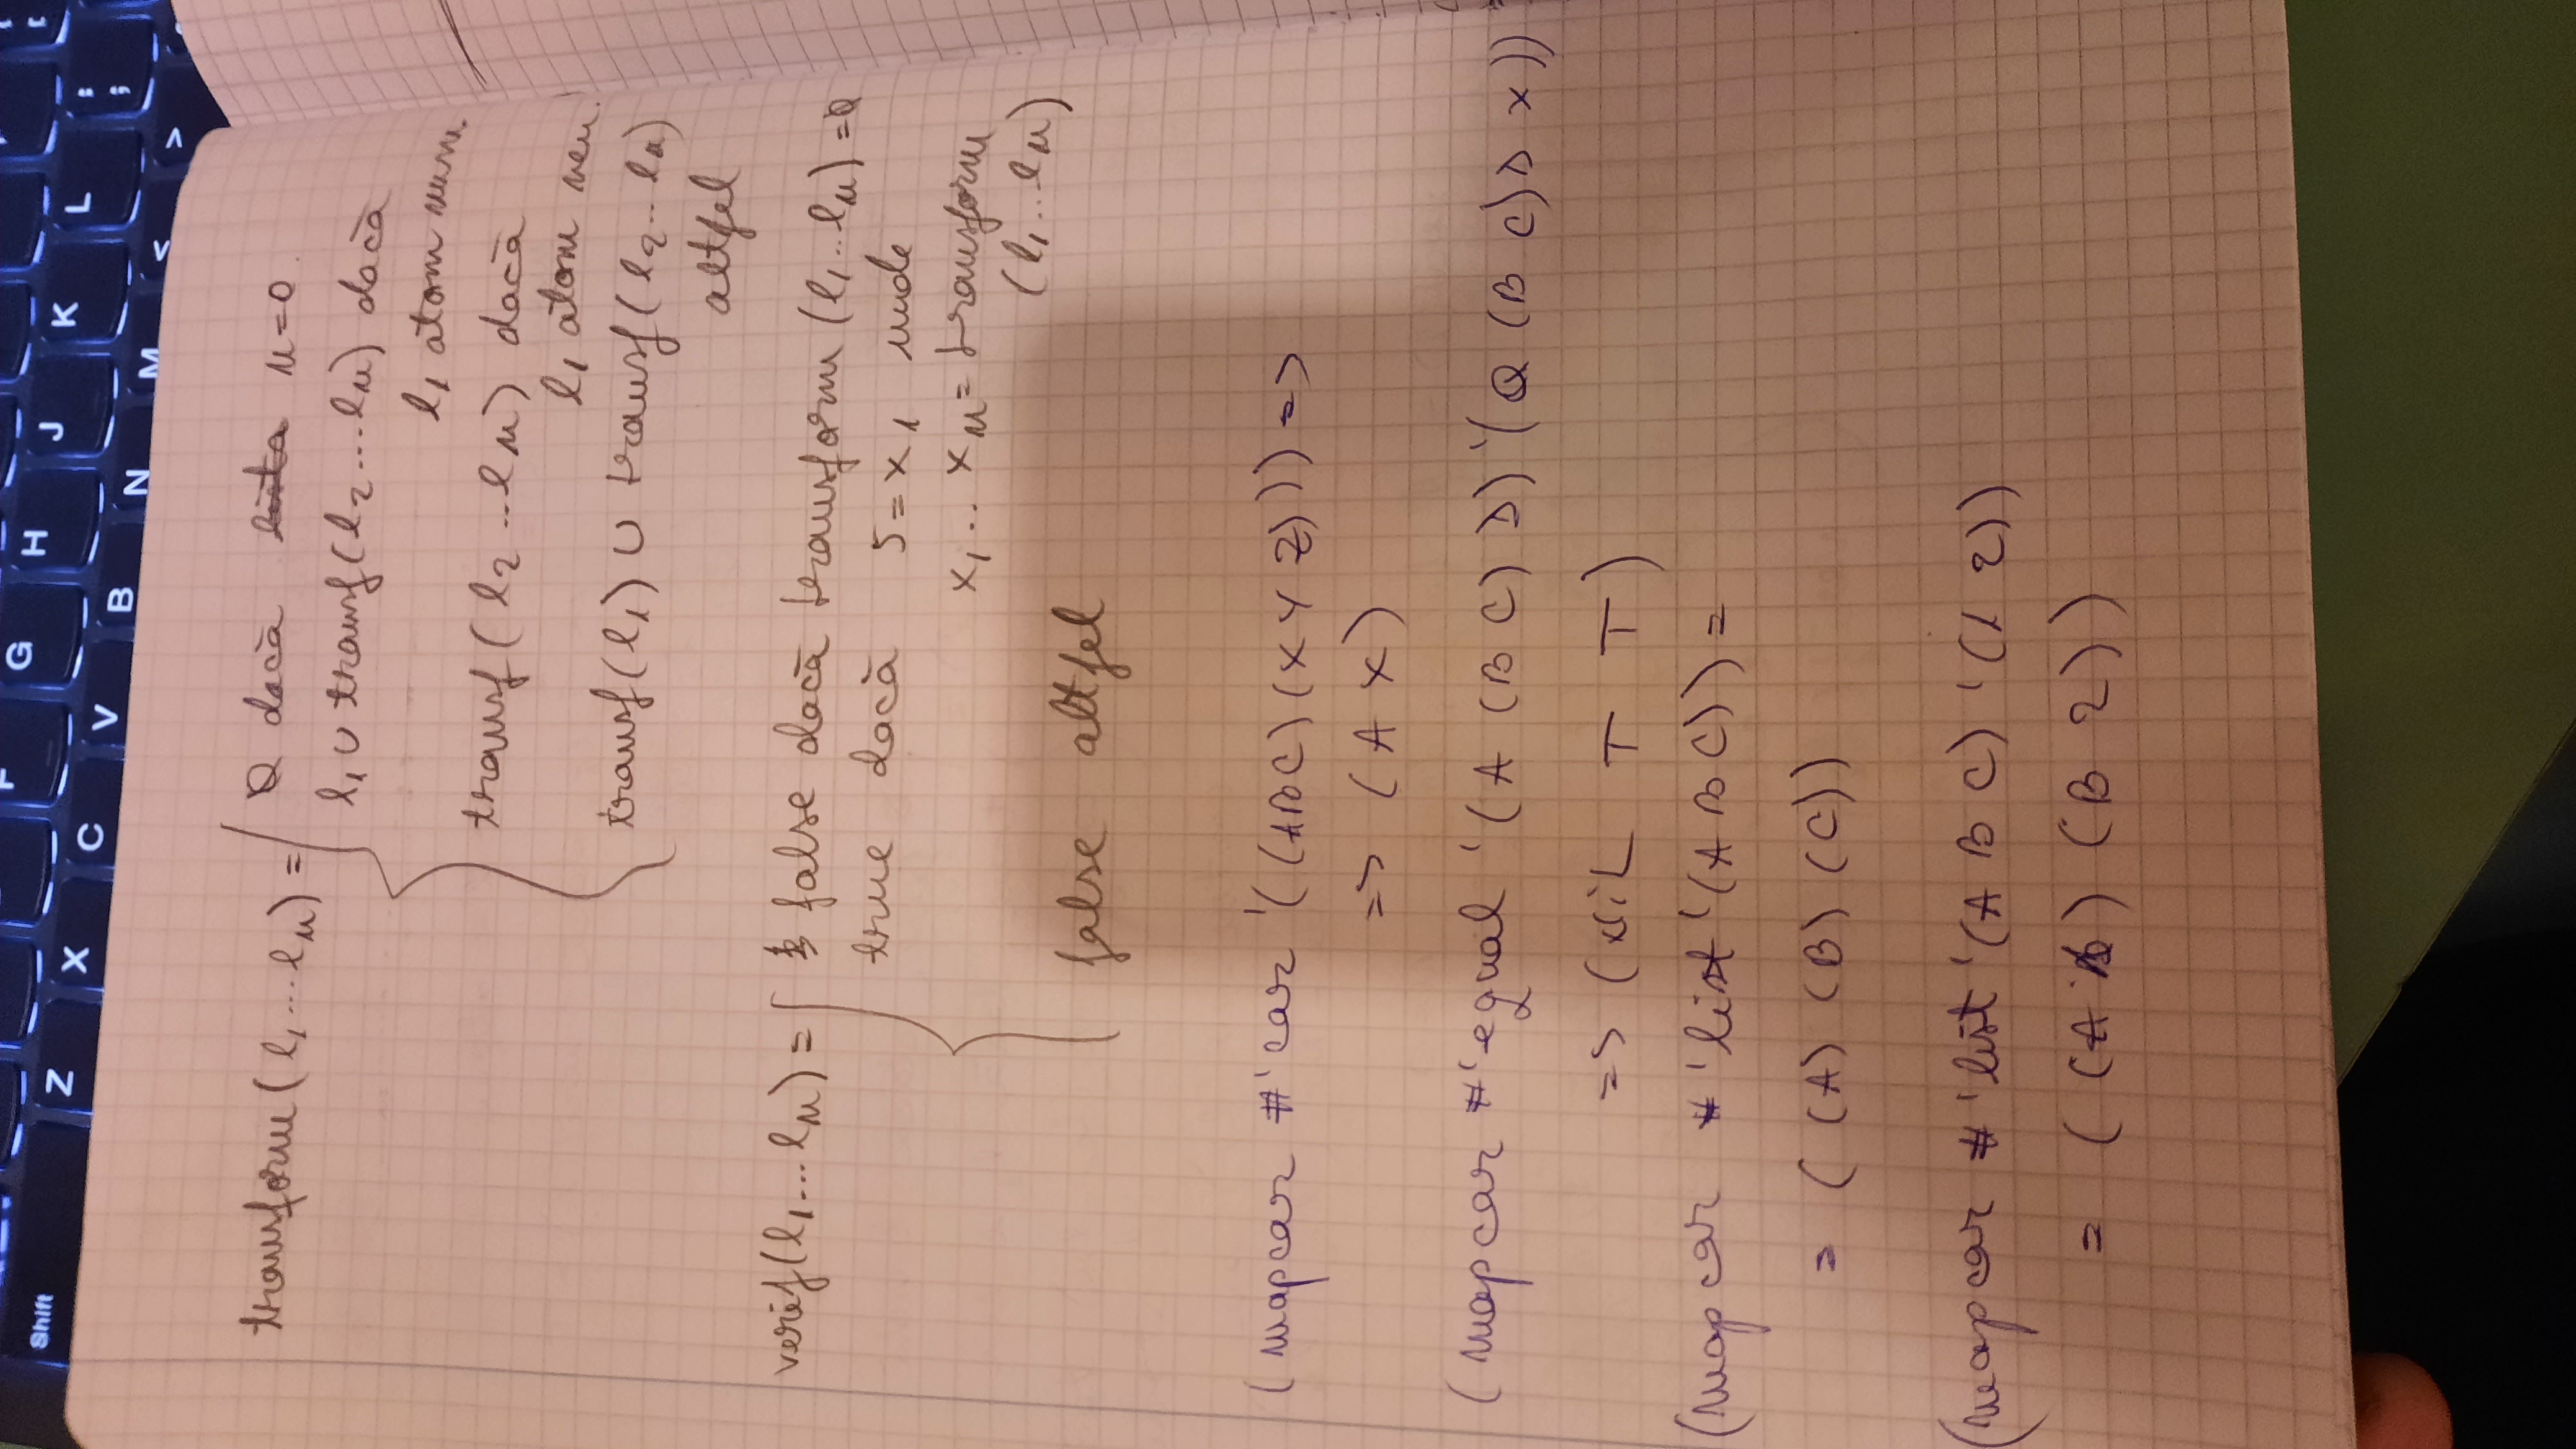 Shift Z X C V B N M < >
F G H J K L : ;
transform(l₁...lₙ) = ∅ dacă n=0.
l₁ ∪ transf(l₂...lₙ) dacă
l₁ atom num.
transf(l₂..lₙ) dacă
l₁ atom nen.
transf(l₁) ∪ transf(l₂..lₙ)
altfel
verif(l₁...lₙ) = false dacă transform(l₁..lₙ)=∅
true dacă 5=x₁ unde
x₁..xₙ= transform
(l₁...lₙ)
false altfel
(mapcar #'car '((A B C)(X Y Z))) =>
=> (A X)
(mapcar #'equal '(A (B C) D) '(Q (B C) D X))
=> (NiL T T)
(mapcar #'list '(A B C)) =
= ((A) (B) (C))
(mapcar #'list '(A B C) '(1 2))
= ((A 1) (B 2))